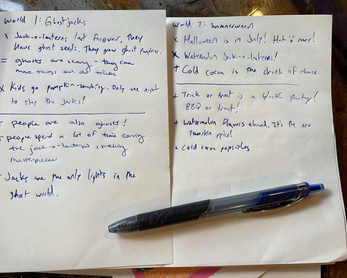 World 1: Ghostjacks
x Jack-o-lanterns last forever, they
have ghost seeds. They grow ghost pumpkins.
= ghosts are scary - they can
make things and do things
x Kids go pumpkin-smashing. Only one night
to stop the Jacks!
- people are also ghosts!
- people spend a lot of time carving
the jack-o-lanterns creating
masterpieces
- Jacks are the only lights in the
ghost world.
World 2: Summerween
x Halloween is in July! Hot is over!
x Watermelon Jack-o-lanterns!
+ Cold cocoa is the drink of choice.
+ Trick or treat is a block party!
BBQ or treat!
+ watermelon flavors abound. It's the
pumpkin spice!
+ cold cocoa popsicles